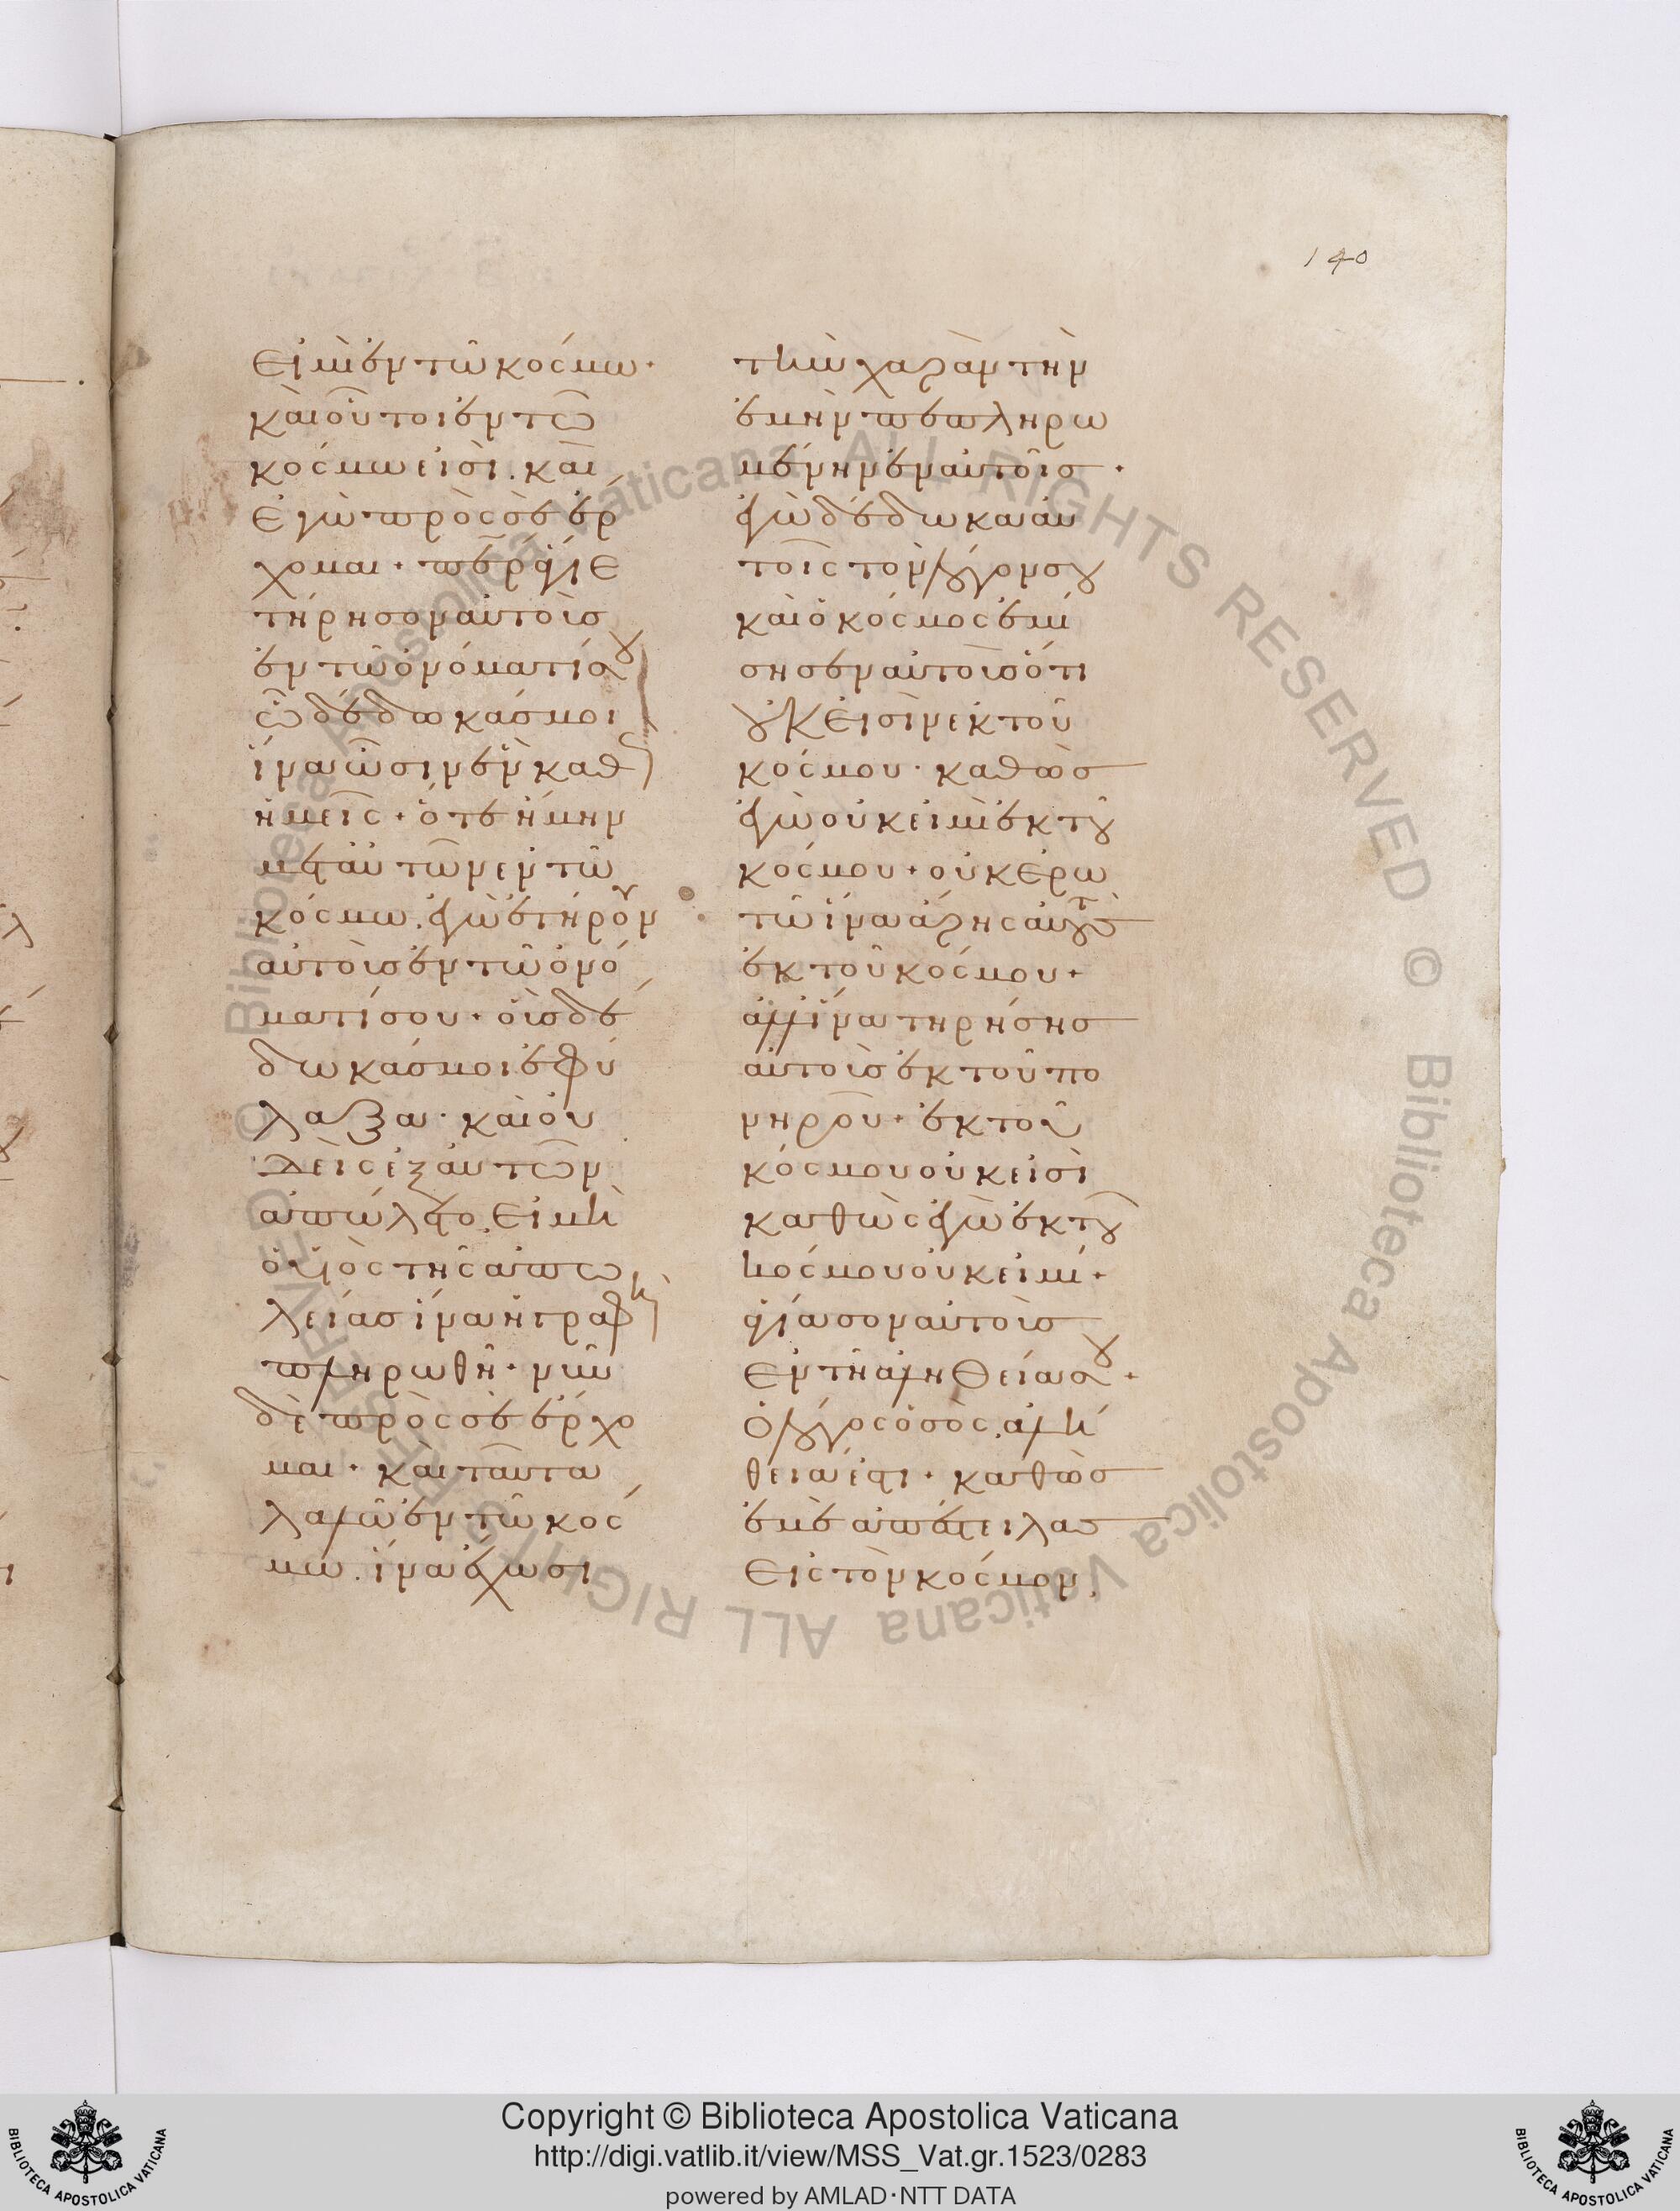 140
εἰμὶ ἐν τῶ κόσμω·
καὶ οὗτοι ἐν τῶ
κόσμω εἰσὶ. καὶ
ἐγὼ πρὸς σὲ ἔρ
χομαι· περ ἅγιε
τήρησον αὐτοὺσ
ἐν τῶ ὀνόματί σου
ὧ δέδωκάσ μοι
ἵνα ὦσιν ἓν καθ(ὼς)
ἡμεῖς· ὅτε ἤμην
μετ αὐτῶν ἐν τῶ
κόσμω. ἐγὼ ἐτήρουν
αὐτοὺσ ἐν τῶ ὀνό
ματί σου· οὓσ δέ
δωκάσ μοι ἐφύ
λαξα· καὶ οὐ
δεὶς ἐξ αὐτῶν
ἀπώλετο. εἰ μὴ
ὁ υἱὸς τῆς ἀπω
λείασ ἵνα ἡ γραφὴ
πληρωθῆ· νῦν
δὲ πρὸς σὲ ἔρχο
μαι· καὶ ταῦτα
λαλῶ ἐν τῶ κόσ
μω. ἵνα ἔχωσι
τὴν χαρὰν τὴν
ἐμὴν πεπληρω
μένην ἐν αὐτοῖσ·
ἐγὼ δέδωκα αὐ
τοῖς τὸν λόγον σου
καὶ ὁ κόσμος ἐμί
σησεν αὐτοὺσ ὅτι
οὐκ εἰσὶν ἐκ τοῦ
κόσμου· καθὼσ
ἐγὼ οὐκ εἰμὶ ἐκ τοῦ
κόσμου· οὐκ ἐρω
τῶ ἵνα ἄρης αὐτοὺσ
ἐκ τοῦ κόσμου·
ἀλλ ἵνα τηρήσησ
αὐτοὺσ ἐκ τοῦ πο
νηροῦ· ἐκ τοῦ
κόσμου οὐκ εἰσὶ
καθὼς ἐγὼ ἐκ τοῦ
κόσμου οὐκ εἰμί·
ἁγίασον αὐτοὺσ
ἐν τῆ ἀληθεία σου·
ὁ λόγος ὁ σὸς. ἀλή
θεια ἐστι· καθὼσ
ἐμὲ ἀπέστειλασ
εἰς τὸν κόσμον.
© Biblioteca Apostolica Vaticana ALL RIGHTS RESERVED
© Biblioteca Apostolica Vaticana ALL RIGHTS RESERVED
Copyright © Biblioteca Apostolica Vaticana
http://digi.vatlib.it/view/MSS_Vat.gr.1523/0283
powered by AMLAD·NTT DATA
BIBLIOTECA APOSTOLICA VATICANA
BIBLIOTECA APOSTOLICA VATICANA